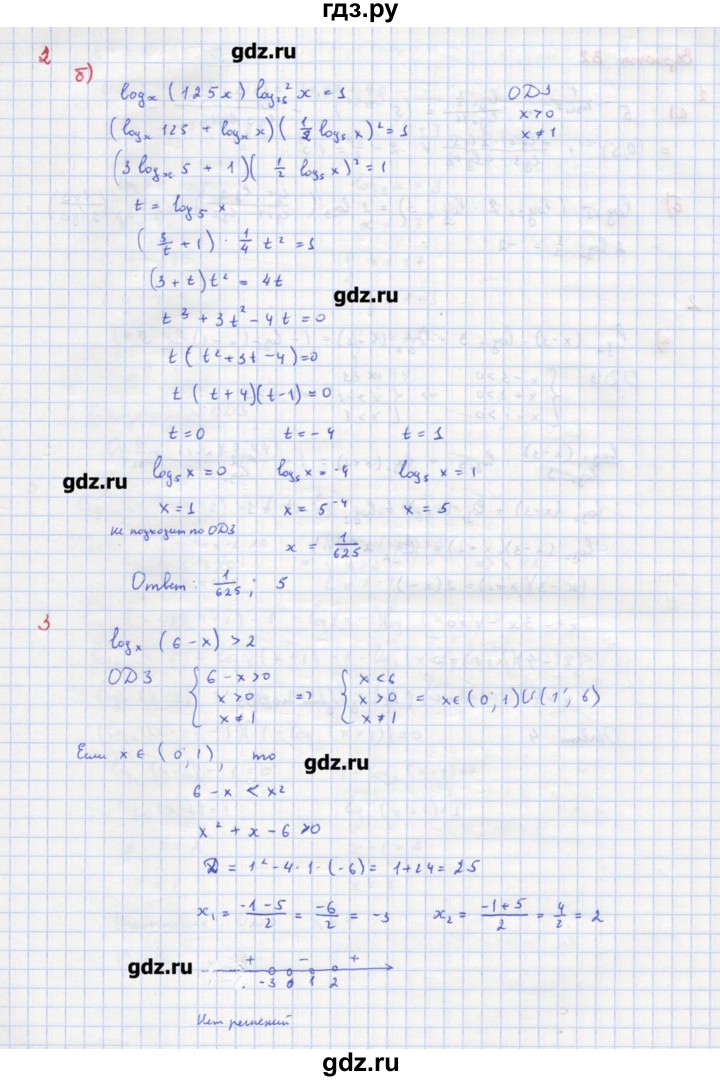 гдз.ру
2
б)
log_x (125x) log_25^2 x = 1
ОДЗ
x > 0
x ≠ 1
(log_x 125 + log_x x)(1/2 log_5 x)^2 = 1
(3 log_x 5 + 1)(1/2 log_5 x)^2 = 1
t = log_5 x
(3/t + 1) · 1/4 t^2 = 1
(3 + t) t^2 = 4t
t^3 + 3t^2 - 4t = 0
t (t^2 + 3t - 4) = 0
t (t + 4)(t - 1) = 0
t = 0 t = -4 t = 1
log_5 x = 0 log_5 x = -4 log_5 x = 1
x = 1 x = 5^-4 x = 5
не подходит по ОДЗ
x = 1/625
Ответ: 1/625; 5
3
log_x (6 - x) > 2
ОДЗ { 6 - x > 0 { x < 6
x > 0 => x > 0 = x ∈ (0; 1) U (1; 6)
x ≠ 1 x ≠ 1
Если x ∈ (0; 1), то
6 - x < x^2
x^2 + x - 6 > 0
D = 1^2 - 4 · 1 · (-6) = 1 + 24 = 25
x_1 = (-1 - 5)/2 = -6/2 = -3 x_2 = (-1 + 5)/2 = 4/2 = 2
+ - +
-3 0 1 2
Нет решений
gdz.ru
gdz.ru
gdz.ru
gdz.ru
gdz.ru
gdz.ru